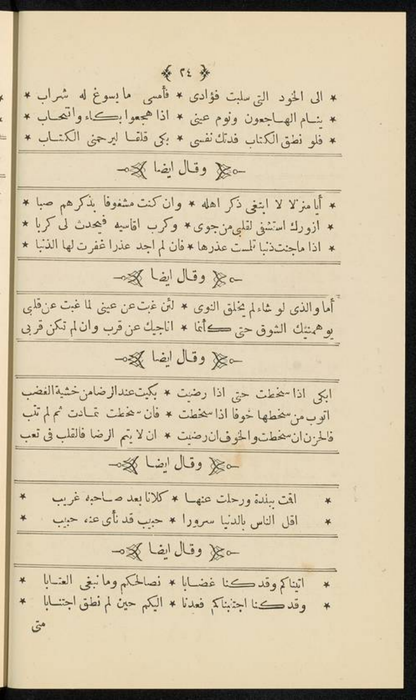 ﴿ ٢٤ ﴾
* الى الخود التى سلبت فؤادى * فأمسى ما يسوغ له شراب *
* ينام الهاجعون ونوم عينى * اذا هجعوا بكاء وانتحاب *
* فلو نطق الكتاب فدتك نفسى * بكى قلقا ليرحمنى الكتاب *
وقال ايضا
* أيا منزلا لا ابتغى ذكر اهله * وان كنت مشغوفا بذكرهم صبا *
* ازورك استشفى لقلبى من جوى * وكرب اقاسيه فيحدث لى كربا *
* اذا ما جنت ذنبا تلمست عذرها * فان لم اجد عذرا غفرت لها الذنبا *
وقال ايضا
أما والذى لو شاء لم يخلق النوى * لئن غبت عن عينى لما غبت عن قلبى
يوهمنيك الشوق حتى كأنما * اناجيك عن قرب وان لم تكن قربى
وقال ايضا
ابكى اذا سخطت حتى اذا رضيت * بكيت عند الرضا من خشية الغضب
اتوب من سخطها خوفا اذا سخطت * فان سخطت تمادت ثم لم تتب
فالحزن ان سخطت والخوف ان رضيت * ان لا يتم الرضا فالقلب فى تعب
وقال ايضا
* اقمت ببلدة ورحلت عنها * كلانا بعد صاحبه غريب *
* اقل الناس بالدنيا سرورا * حبيب قد نأى عنه حبيب *
وقال ايضا
* اتيناكم وقد كنا غضابا * نصالحكم وما نبغى العتابا *
* وقد كنا اجتنبناكم فعدنا * اليكم حين لم نطق اجتنابا *
متى